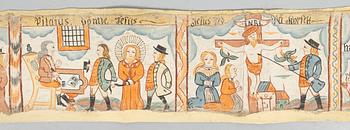 Pilatus dömde Jesus
Jesus
INRI
på korset